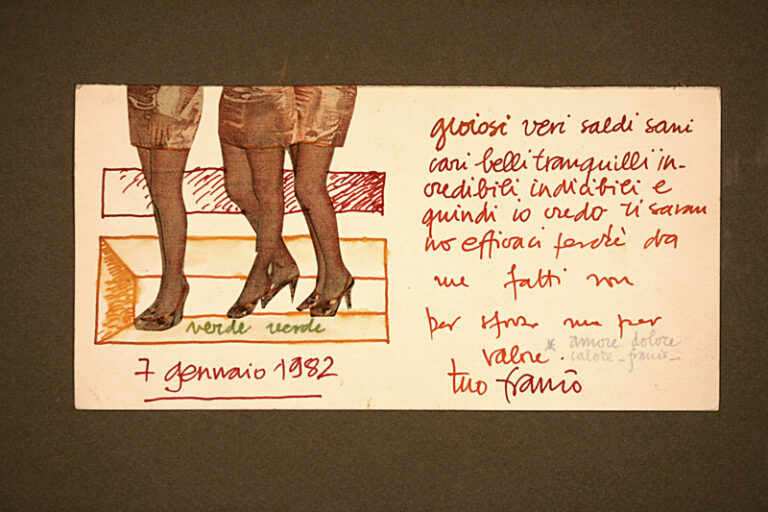 verde verde
7 gennaio 1982
gioiosi veri saldi sani
cari belli tranquilli in-
credibili indicibili e
quindi io credo ti saran
no efficaci perchè da
me fatti non
per sforzo ma per
valore. * amore dolore
calore - franco -
tuo franco